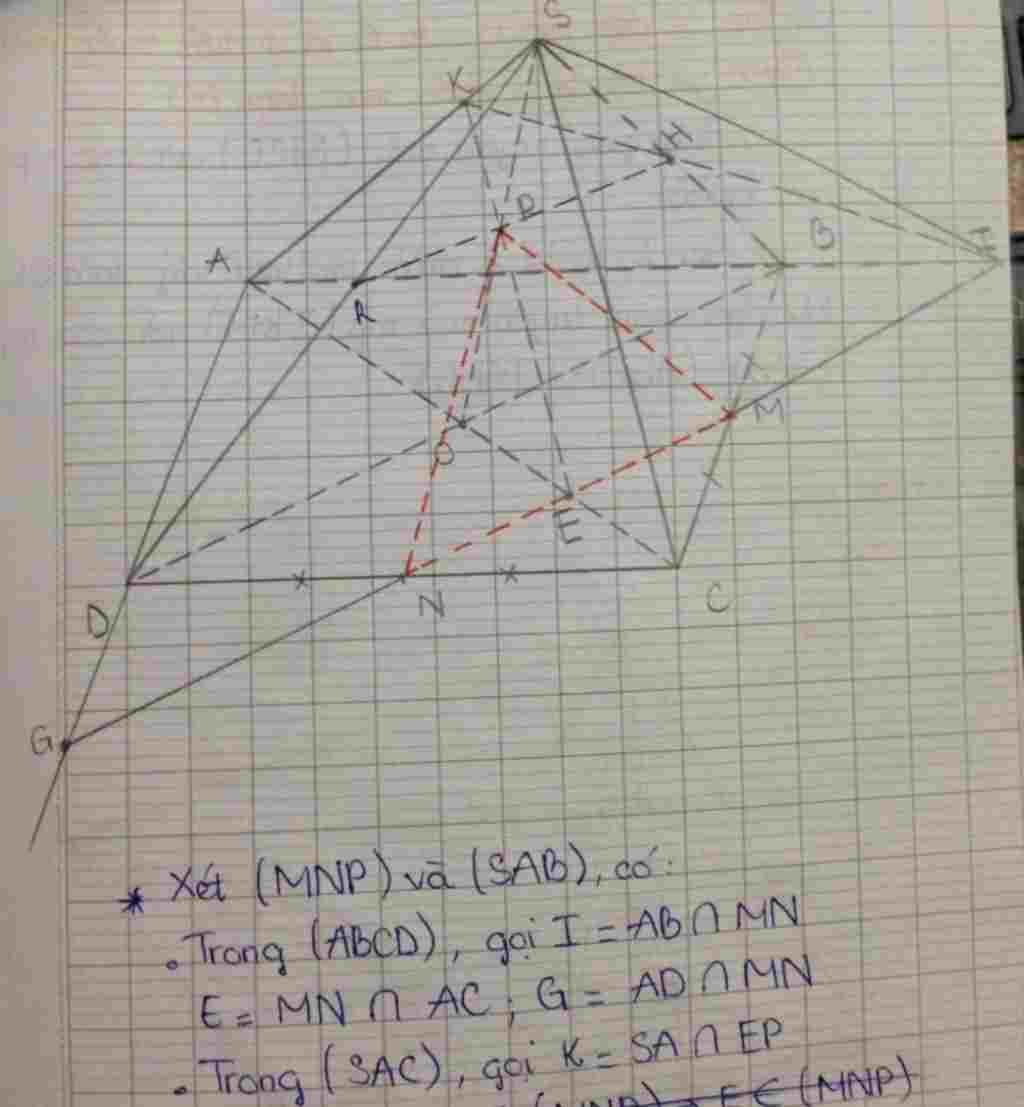 S
K
H
P
A
B
F
R
M
O
E
N
C
D
G
* Xét (MNP) và (SAB), có:
. Trong (ABCD), gọi I = AB ∩ MN
E = MN ∩ AC ; G = AD ∩ MN
. Trong (SAC), gọi K = SA ∩ EP
(MNP)